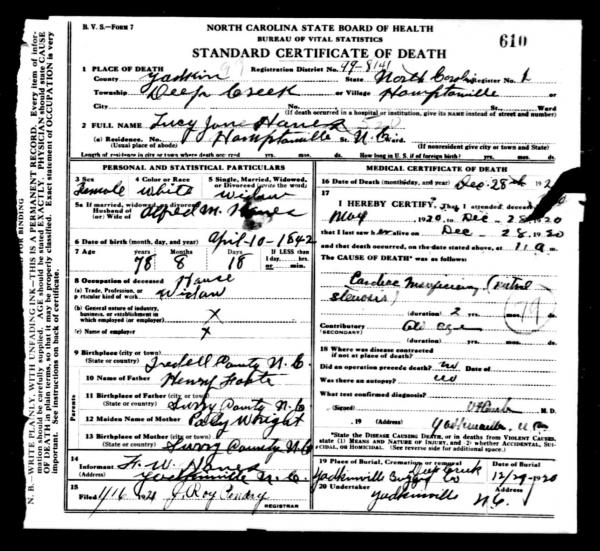 B. V. S.—FORM 7
NORTH CAROLINA STATE BOARD OF HEALTH
BUREAU OF VITAL STATISTICS
STANDARD CERTIFICATE OF DEATH
610
1 PLACE OF DEATH
Registration District No. 99-8141
County Yadkin State North Carolina Register No. 1
Township Deep Creek or Village Hamptonville
City No. St. Ward
(If death occurred in a hospital or institution, give its NAME instead of street and number)
2 FULL NAME Lucy Jane Hanes
(a) Residence. No. Hamptonville St. N.C. Ward.
(Usual place of abode) (If nonresident give city or town and State)
Length of residence in city or town where death occurred yrs. mos. ds. How long in U. S. if of foreign birth? yrs. mos. ds.
PERSONAL AND STATISTICAL PARTICULARS
3 Sex 4 Color or Race 5 Single, Married, Widowed, or Divorced (write the word)
Female White Widow
5a If married, widowed, or divorced
Husband of
(or) Wife of Alfred M. Hanes
6 Date of birth (month, day, and year) April-10-1842
7 Age years months days IF LESS than
78 8 18 1 day, hrs.
or min.
8 Occupation of deceased House
(a) Trade, Profession, or
particular kind of work Widow
(b) General nature of industry,
business, or establishment in
which employed (or employer) X
(c) Name of employer X
9 Birthplace (city or town)
(State or country) Iredell County N.C.
10 Name of Father Henry
11 Birthplace of Father (city or town)
(State or country) Surry County N.C.
12 Maiden Name of Mother Polly Wright
13 Birthplace of Mother (city or town)
(State or country) Surry County N.C.
Parents
14
Informant F. W. Hanes
(Address) Yadkinville N.C.
15
Filed 1/16 1921 J. Roy Pendry
REGISTRAR
MEDICAL CERTIFICATE OF DEATH
16 Date of Death (month, day, and year) Dec. 28th 192
17
I HEREBY CERTIFY, That I attended deceased
May 1920 to Dec - 28 1920
that I last saw her alive on Dec - 28 1920
and that death occurred, on the date stated above, at 11 a m.
The CAUSE OF DEATH* was as follows:
Cardiac (mitral
stenosis)
79
(duration) 2 yrs. mos. ds.
Contributory Old Age
(Secondary)
(duration) yrs. mos. ds.
18 Where was disease contracted
if not at place of death?
Did an operation precede death? no Date of
Was there an autopsy? no
What test confirmed diagnosis?
(Signed) M. D.
, 19 (Address) Yadkinville, N.C.
*State the DISEASE CAUSING DEATH, or in deaths from VIOLENT CAUSES, state (1) MEANS AND NATURE OF INJURY, and (2) whether ACCIDENTAL, SUICIDAL, or HOMICIDAL. (See reverse side for additional space.)
19 Place of Burial, Cremation or removal Date of Burial
Deep Creek
Yadkinville Co 12/29-1920
20 Undertaker Address
Yadkinville N.C.
N. B.—WRITE PLAINLY, WITH UNFADING INK—THIS IS A PERMANENT RECORD. Every item of information should be carefully supplied. AGE should be stated EXACTLY. PHYSICIANS should state CAUSE OF DEATH in plain terms, so that it may be properly classified. Exact statement of OCCUPATION is very important. See instructions on back of certificate.
FOR BINDING